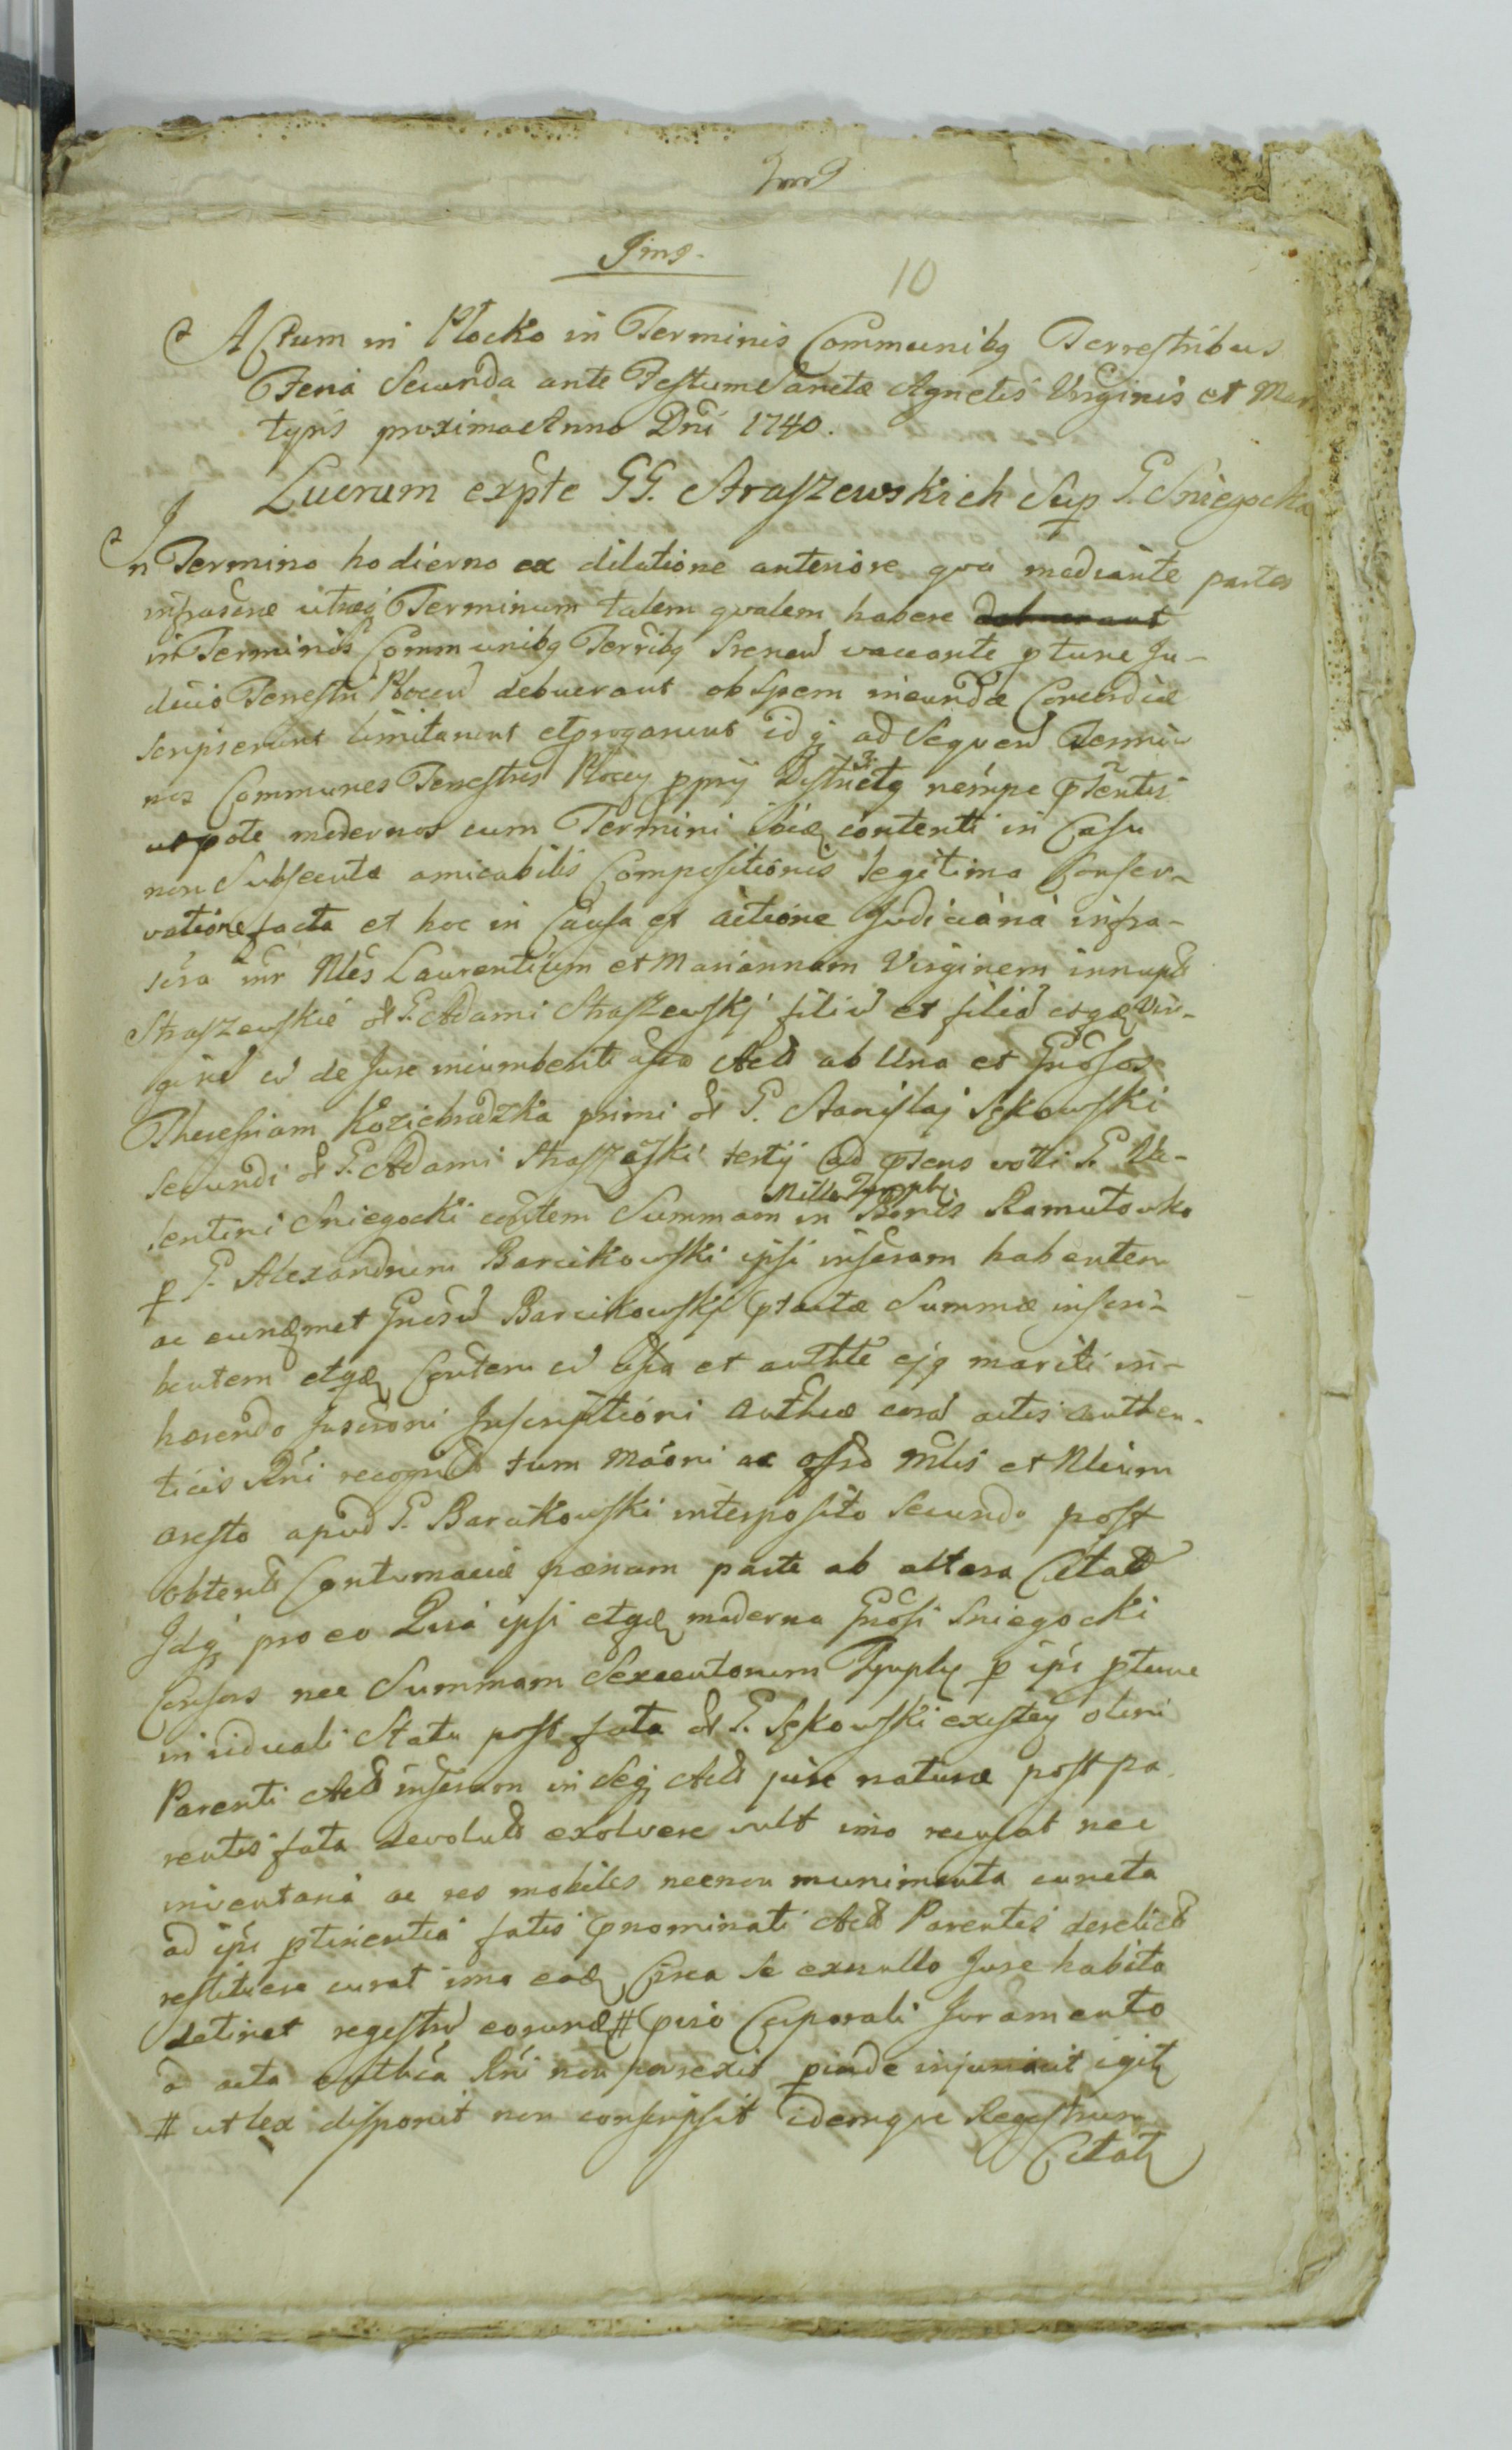 Jms.
10
Actum in Plocko in Terminis Communibq Terrestribus
Feria Secunda ante Festum Sanctæ Agnetis Virginis et Mar
tyris proxima Anno Dni 1740.
Lucrum expte GG. Straszewskich Sup G. Sniegocka
In Termino hodierno ex dilatione anteriore qva mediante partes
infrascræ utræq Terminum talem qvalem habere debuerant
in Terminis Communibq Terribq vacante ptunc Ju-
dicio Terrestri Plocen debuerant ob Spem ineundæ Concordiæ
scripserunt limitarunt et prorogarunt idq ad Seqven Termi
nos Communes Terrestres Plocen pprij Districtq nempe pntes
utpote modernos cum Termini contenti in Casu
non Subsecutæ amicabilis Compositionis legitima Conser-
vatione facta et hoc in Causa et actione Judiciaria infra-
scra inr Nles Laurentium et Mariannam Virginem innupt
Straszewskie ol G. Adami Straszewskj filiu et filia etqæ Vir-
gine cu de Jure incumbenti Act ab Una et Gnosos
Theresiam Koziebrodzka primi ol G. Stanislaj Sękowski
Secundi ol G. Adami Straszewski tertij ad pnens voti G. Va-
lentini Sniegocki Summam Mille Tympf. in Bonis Ramutowko
p G. Alexandrum Barcikowski ipsi inscram habentem
ac eundmet Gnosu Barcikowskj ptactæ Summæ inscri-
bentem etqæ Contem cu assa et authte ejq mariti in-
hærendo Inscriptioni authcæ cora actis authen-
ticis Rni recognit tum Mooni ac offso Mlis et Nlium
aresto apud G. Barcikowski interposito Secundo post
obtent Contumaciæ pœnam parte ab altera Citat
Idq pro eo Quia ipsi etqæ moderna Gnosi Sniegocki
Consors nec Summam Sexcentorum Tympf p ips ptunc
in viduali Statu post fata ol G. Sękowski existen olim
Parenti Act inscram in Seq Act jure naturæ post pa
rentis fata devolut exolvere vult imo recusat nec
inventaria ac res mobiles necnon munimenta cuncta
ad ips ptinentia fatis pnominati Act Parentis derelict
restituere curat imo ead Circa se ex nullo Jure habita
detinet regestru eorund # pvio Corporali Juramento
ad acta authca Rni non porrexit pinde injuniavit igitr
# ut lex disponit non conscripsit idemque Regestrum
Citatr